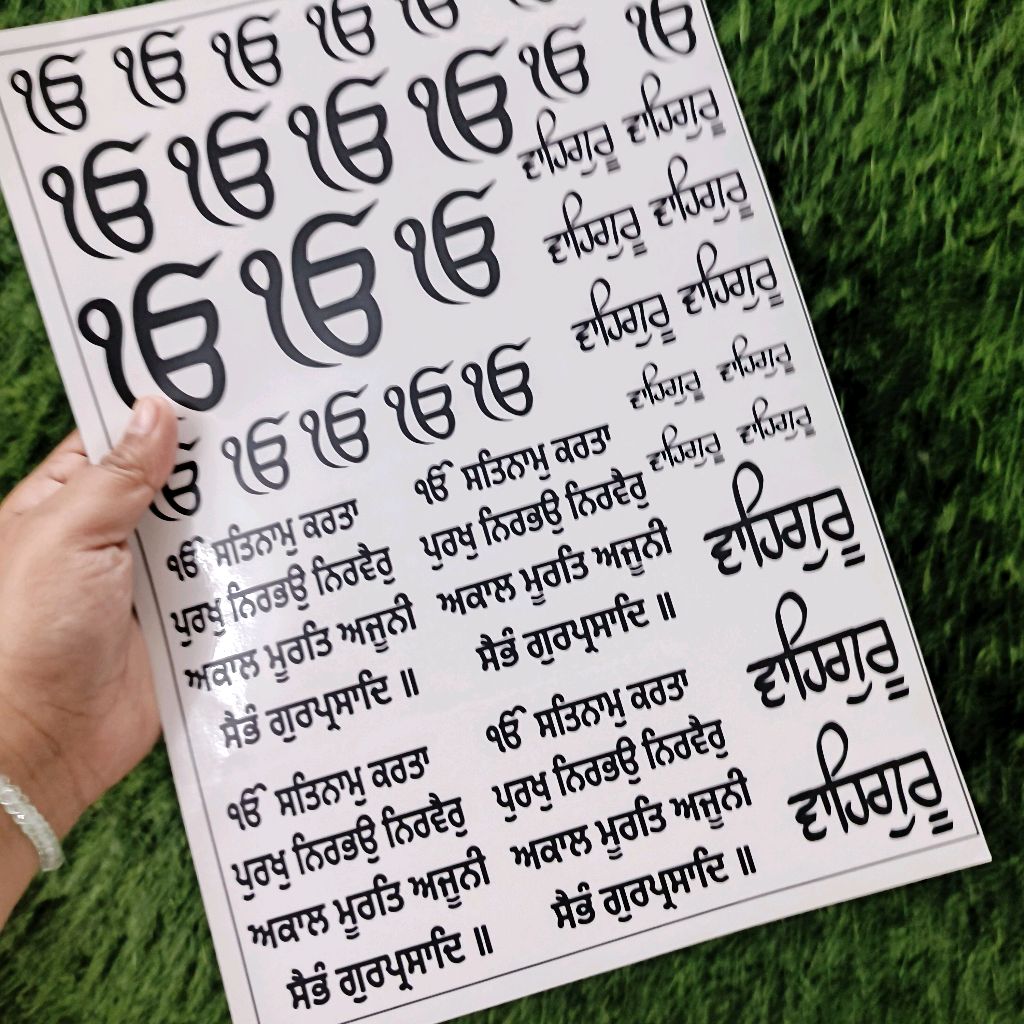 ੴ ੴ ੴ ੴ ੴ ੴ
ੴ ੴ ੴ ੴ ੴ
ੴ ੴ ੴ
ੴ ੴ ੴ ੴ ੴ
ਵਾਹਿਗੁਰੂ ਵਾਹਿਗੁਰੂ
ਵਾਹਿਗੁਰੂ ਵਾਹਿਗੁਰੂ
ਵਾਹਿਗੁਰੂ ਵਾਹਿਗੁਰੂ
ਵਾਹਿਗੁਰੂ ਵਾਹਿਗੁਰੂ
ਵਾਹਿਗੁਰੂ ਵਾਹਿਗੁਰੂ
ਵਾਹਿਗੁਰੂ
ਵਾਹਿਗੁਰੂ
ਵਾਹਿਗੁਰੂ
ੴ ਸਤਿਨਾਮੁ ਕਰਤਾ
ਪੁਰਖੁ ਨਿਰਭਉ ਨਿਰਵੈਰੁ
ਅਕਾਲ ਮੂਰਤਿ ਅਜੂਨੀ
ਸੈਭੰ ਗੁਰਪ੍ਰਸਾਦਿ ॥
ੴ ਸਤਿਨਾਮੁ ਕਰਤਾ
ਪੁਰਖੁ ਨਿਰਭਉ ਨਿਰਵੈਰੁ
ਅਕਾਲ ਮੂਰਤਿ ਅਜੂਨੀ
ਸੈਭੰ ਗੁਰਪ੍ਰਸਾਦਿ ॥
ੴ ਸਤਿਨਾਮੁ ਕਰਤਾ
ਪੁਰਖੁ ਨਿਰਭਉ ਨਿਰਵੈਰੁ
ਅਕਾਲ ਮੂਰਤਿ ਅਜੂਨੀ
ਸੈਭੰ ਗੁਰਪ੍ਰਸਾਦਿ ॥
ੴ ਸਤਿਨਾਮੁ ਕਰਤਾ
ਪੁਰਖੁ ਨਿਰਭਉ ਨਿਰਵੈਰੁ
ਅਕਾਲ ਮੂਰਤਿ ਅਜੂਨੀ
ਸੈਭੰ ਗੁਰਪ੍ਰਸਾਦਿ ॥